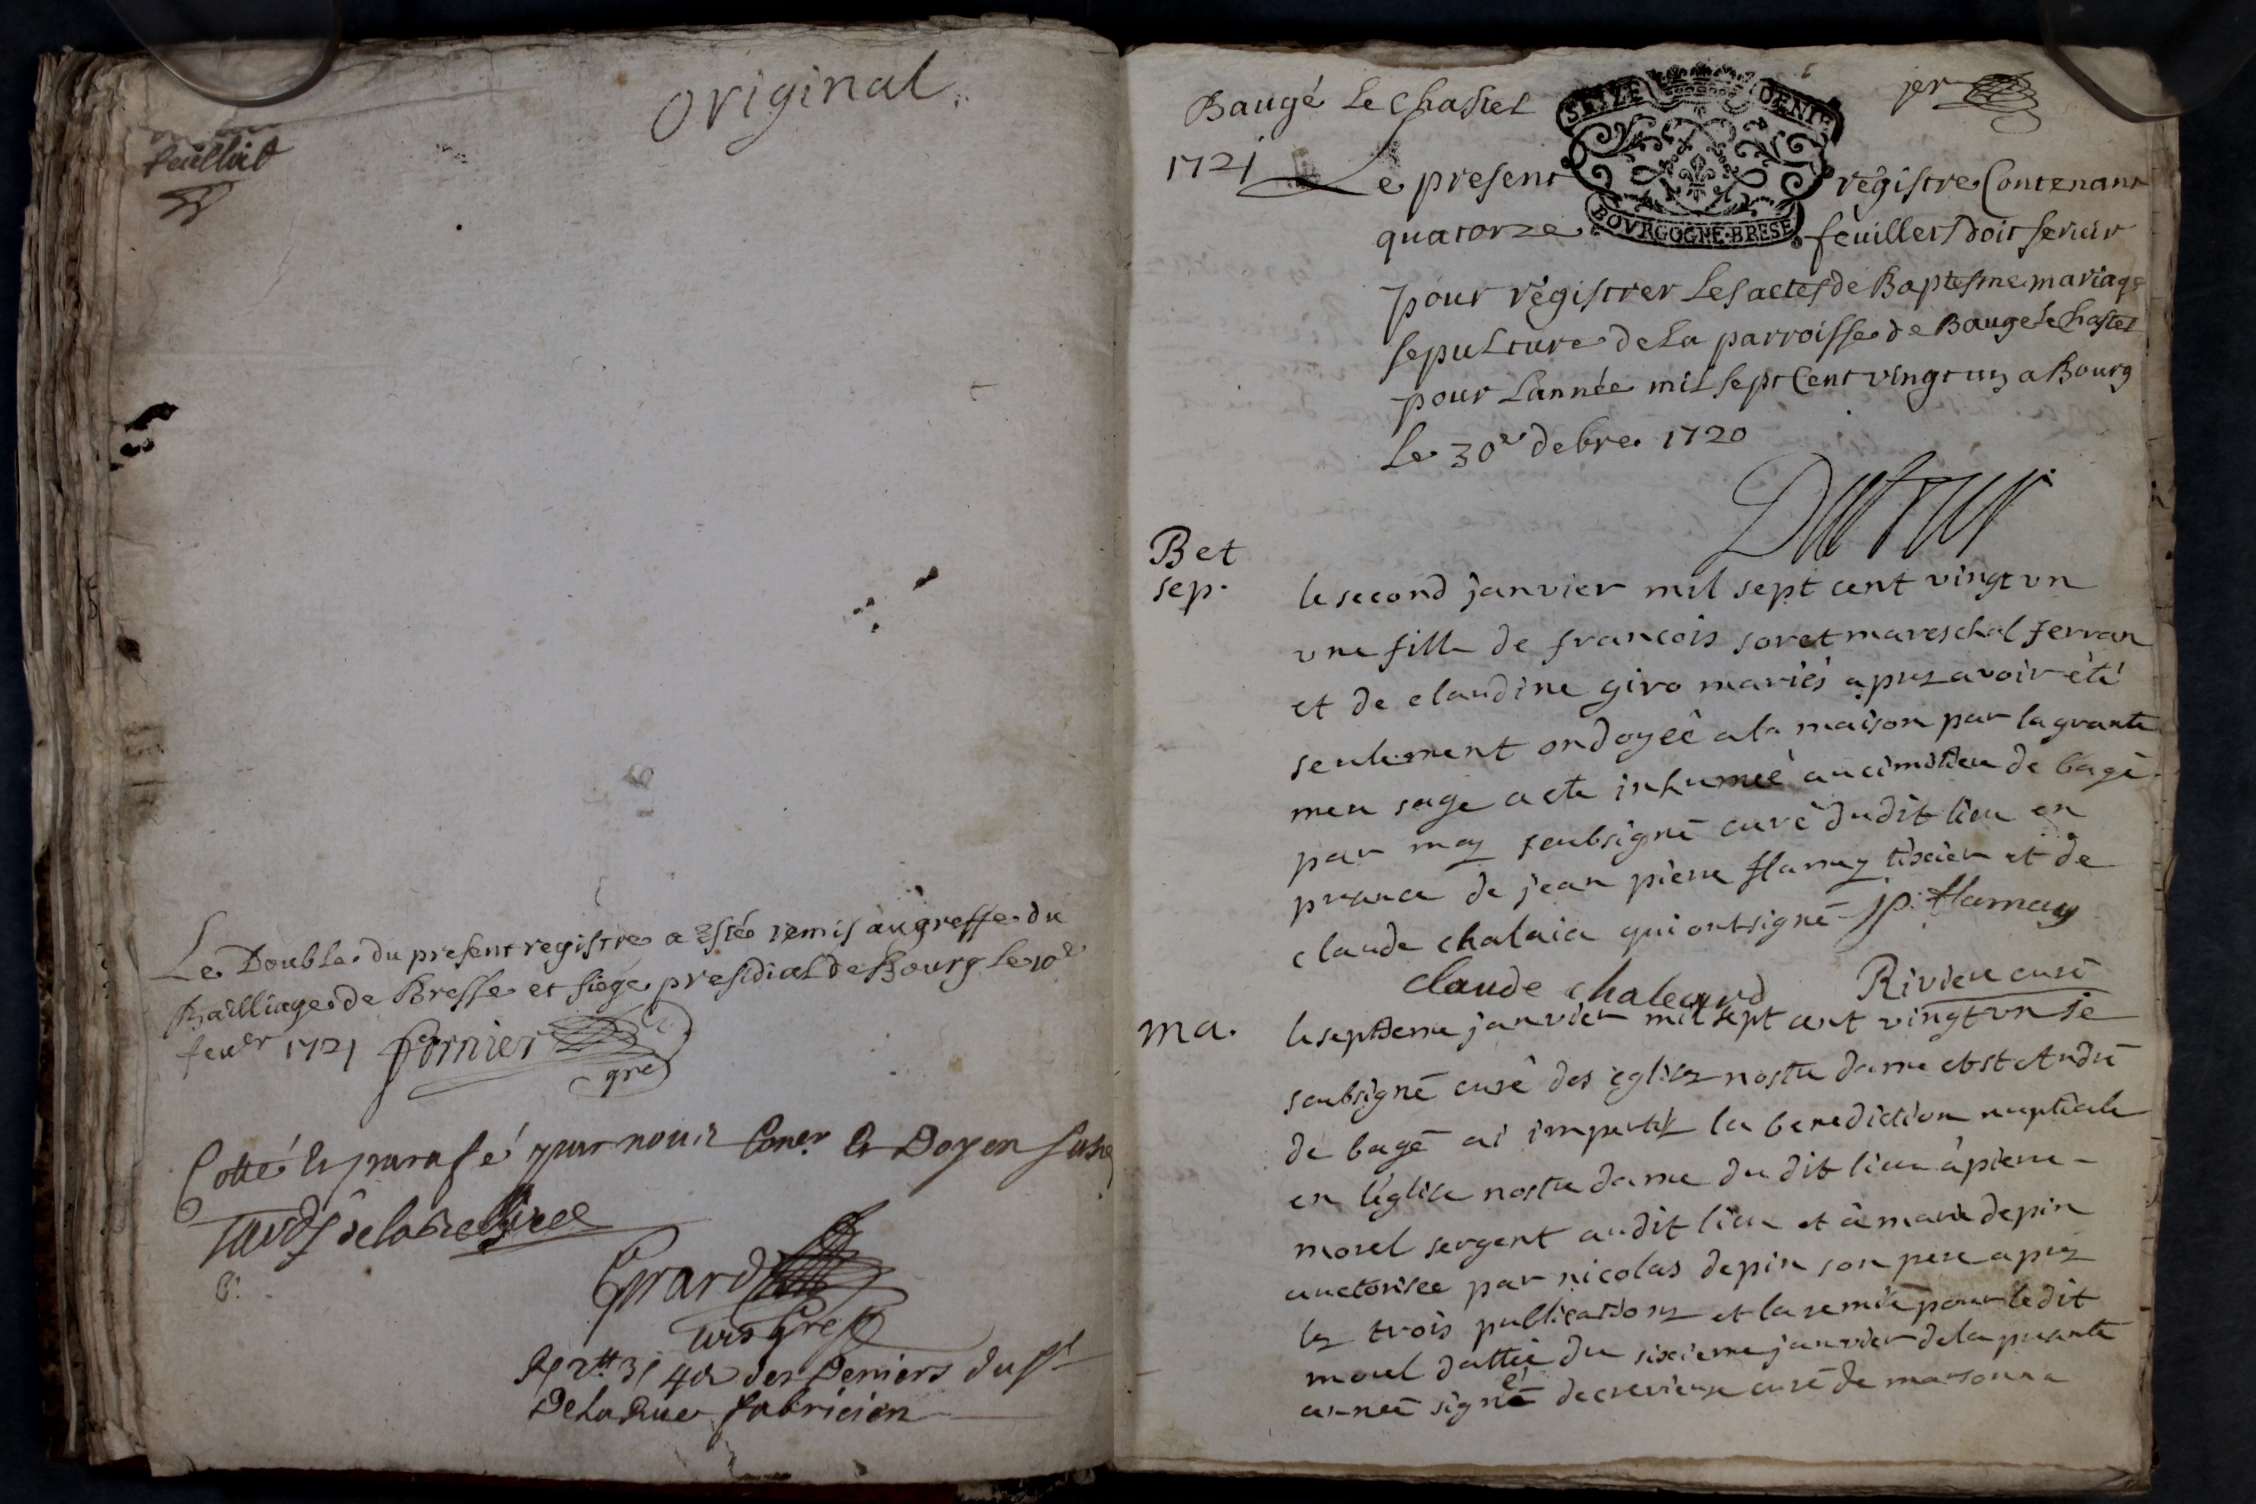 Original
feuillet
Le Double du present registre a esté remis au greffe du
Bailliage de Bresse et siege presidial de Bourg le 10e
feuer 1721 fornier
gre
Cotté et parafé par nous Coner et Doyen
Girard
des Deniers du sr
De la Rue fabricien
Baugé Le Chastel
per
SEIZE DENIE
BOVRGOGNE·BRESE
1721
Le present registre Contenant
quatorze feuillets doit seruir
pour régistrer Les actes de Baptesme mariage
sepulture de La parroisse de Baugé Le Chastel
pour Lannée mil sept Cent vingt un a Bourg
Le 30e debre 1720
B et
sep.
le second janvier mil sept cent vingt vn
vne fille de francois soret mareschal ferran
et de claudine giro mariés aprez avoir été
seulement ondoyée a la maison par la
sage a ete inhumée au cimitiere de bagé
par moy soubsigné curé dudit lieu en
de jean pierre flamey tixier et de
claude chalaia qui ont signé jp. flamay
claude chaleard Rivier curé
ma.
le septieme janvier mil sept cent vingt vn je
soubsigné curé des eglisez nostre dame et st André
de bagé ai impartiz la benediction nuptiale
en l'église nostre dame du dit lieu à pierre
morel sergent audit lieu et à marie depin
auctorisee par nicolas depin son pere aprez
lez trois publications et la remise pour le dit
morel dattée du sixieme janvier de la
année signé decrevieux curé de